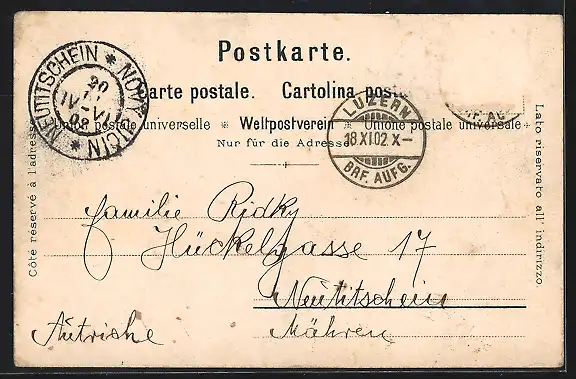 Postkarte.
Carte postale. Cartolina postale
Union postale universelle ✻ Weltpostverein ✻ Unione postale universale
Nur für die Adresse
NEUTITSCHEIN ✻ NOVÝ JIČÍN ✻
20
LUZERN
18.XI.02.X–
BRF. AUFG.
BRF. AUFG.
Côte réservé à l'adresse.
Lato riservato all' indirizzo.
Familie Ridky
Hückelgasse 17
Neutitschein
Mähren
Autriche